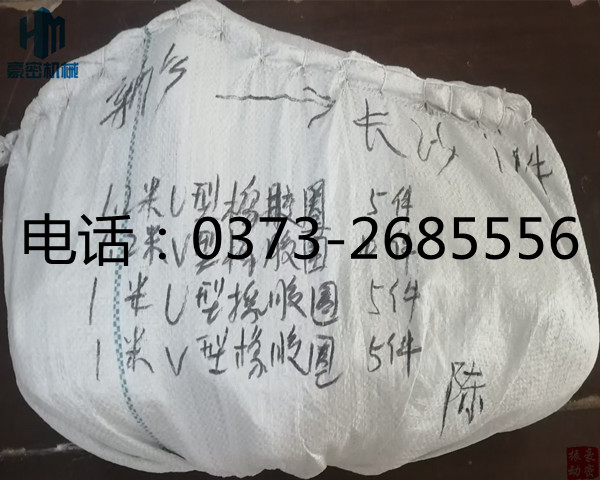 HM
豪密机械
→ 长沙 1件
1.2米U型橡胶圈 5件
电话：0373-2685556
1.2米V型橡胶圈 5件
1米U型橡胶圈 5件
1米V型橡胶圈 5件
陈
豪密振动